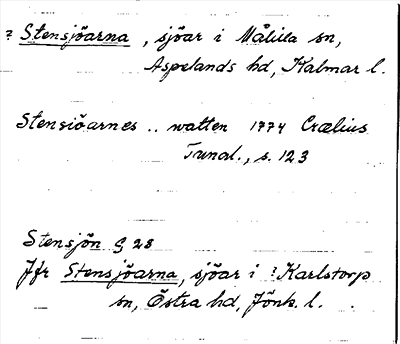 ? Stensjöarna, sjöar i Målilla sn,
Aspelands hd, Kalmar l.
Stensiöarnes .. watten 1774 Crælius
Tunal., s. 123
Stensjön G 28
Jfr Stensjöarna, sjöar i ? Karlstorp
sn, Östra hd, Jönk. l.